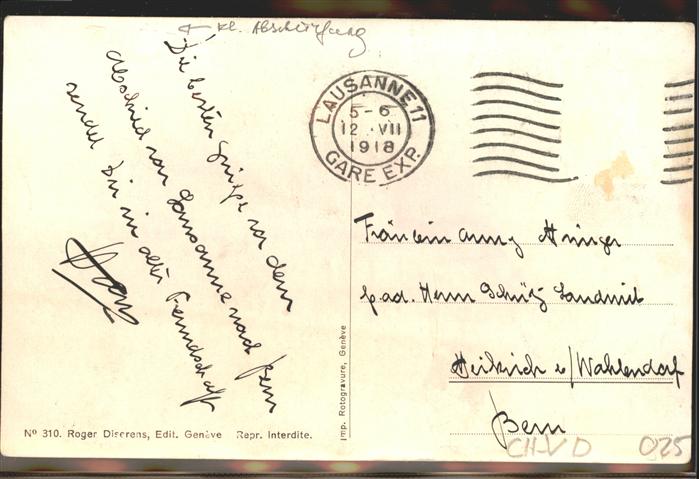 kl. Abschürfung
Die besten Grüsse vor dem
Abschied von Lausanne nach Bern
sendet Dir in alter Freundschaft
LAUSANNE 11
5-6
12 · VII
1918
GARE EXP.
Fräulein Anny
p. ad. Herrn Schütz Landwirt
b/Wahlendorf
Bern
Imp. Rotogravure, Genève
Nº 310. Roger Diserens, Edit. Genève Repr. Interdite.
CH-VD 025